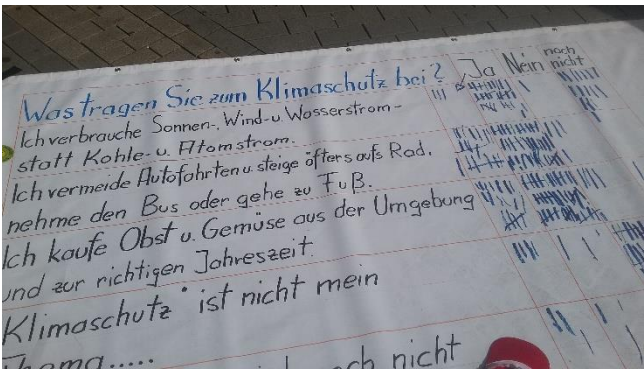 Was tragen Sie zum Klimaschutz bei? Ja Nein noch nicht
Ich verbrauche Sonnen-, Wind- u. Wasserstrom-
statt Kohle- u. Atomstrom.
Ich vermeide Autofahrten u. steige öfters aufs Rad,
nehme den Bus oder gehe zu Fuß.
Ich kaufe Obst u. Gemüse aus der Umgebung
und zur richtigen Jahreszeit.
Klimaschutz" ist nicht mein
Thema.....
noch nicht